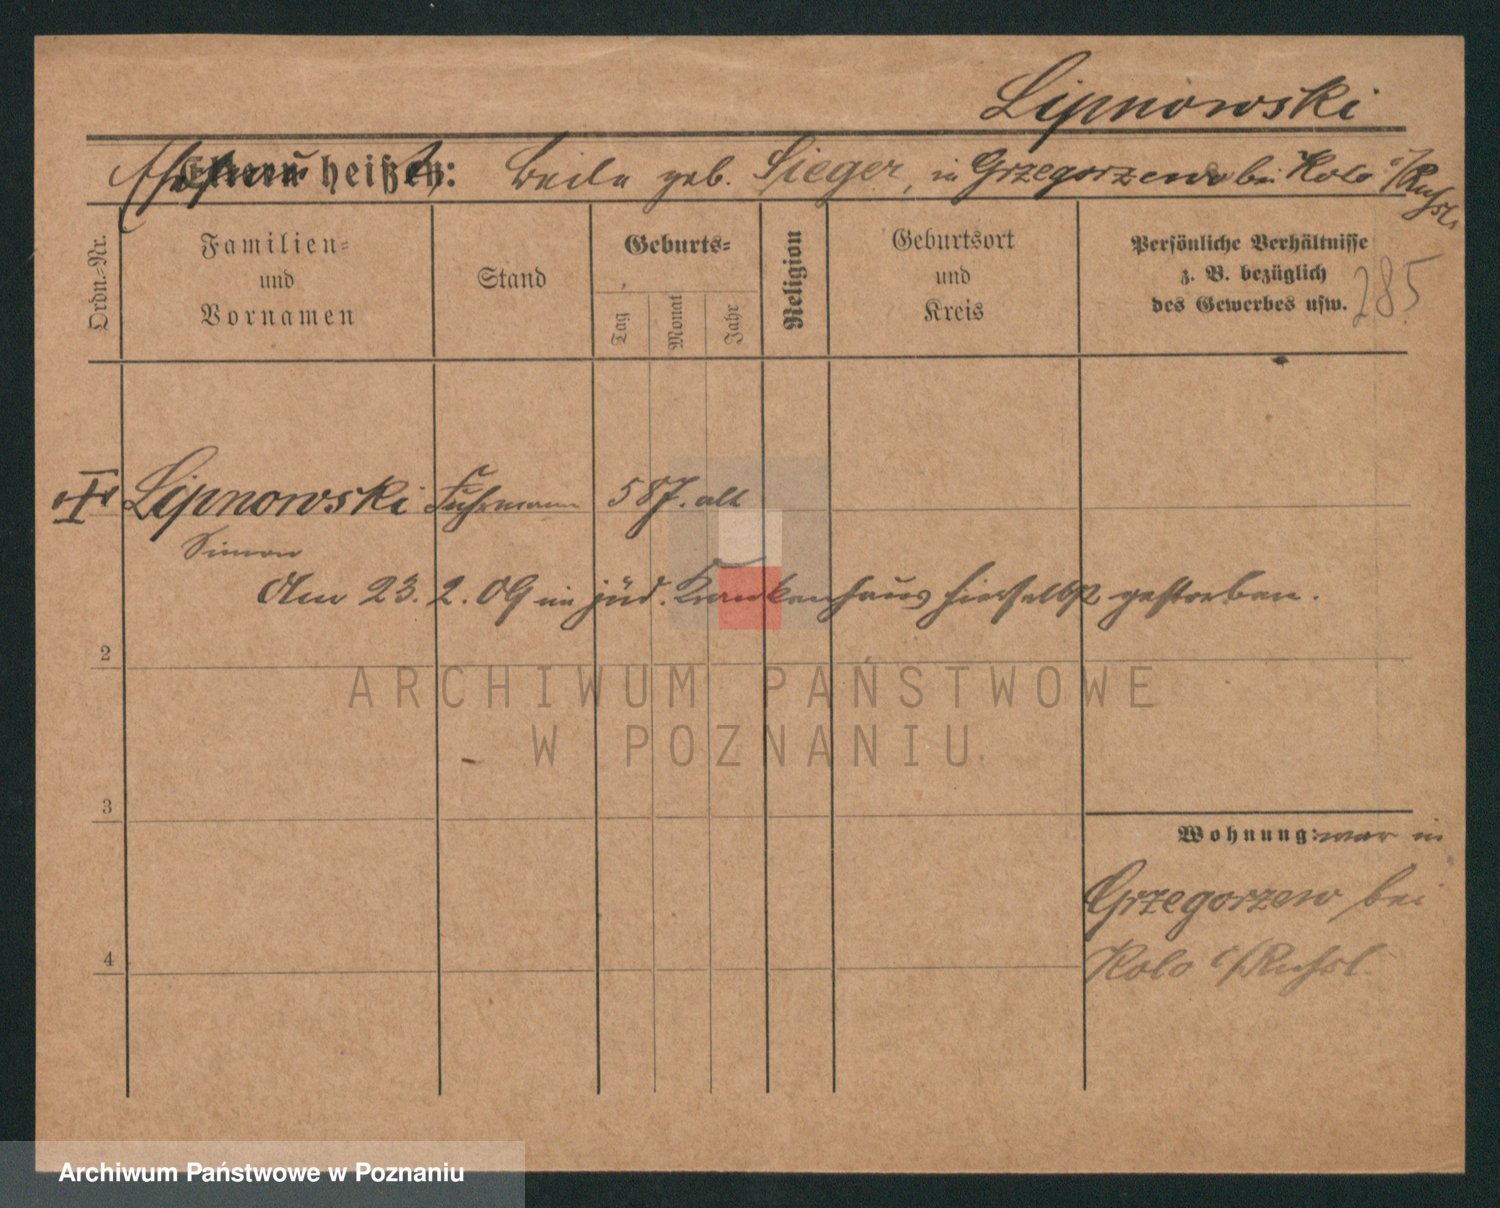 Lipnowski
Ehefrau heißt: Beila geb. Sieger, in Grzegorzewo bei Kolo i/Russl.
Ordn.-Nr.
Familien-
und
Vornamen
Stand
Geburts-
Tag
Monat
Jahr
Religion
Geburtsort
und
Kreis
Persönliche Verhältnisse
z. B. bezüglich
des Gewerbes usw.
285
Lipnowski Fuhrmann 58 J. alt
Simon
Am 23. 2. 09 im jüd. Krankenhaus hierselbst gestorben.
2
ARCHIWUM PAŃSTWOWE
W POZNANIU
3
Wohnung: war in
Grzegorzew bei
Kolo i/Russl.
4
Archiwum Państwowe w Poznaniu